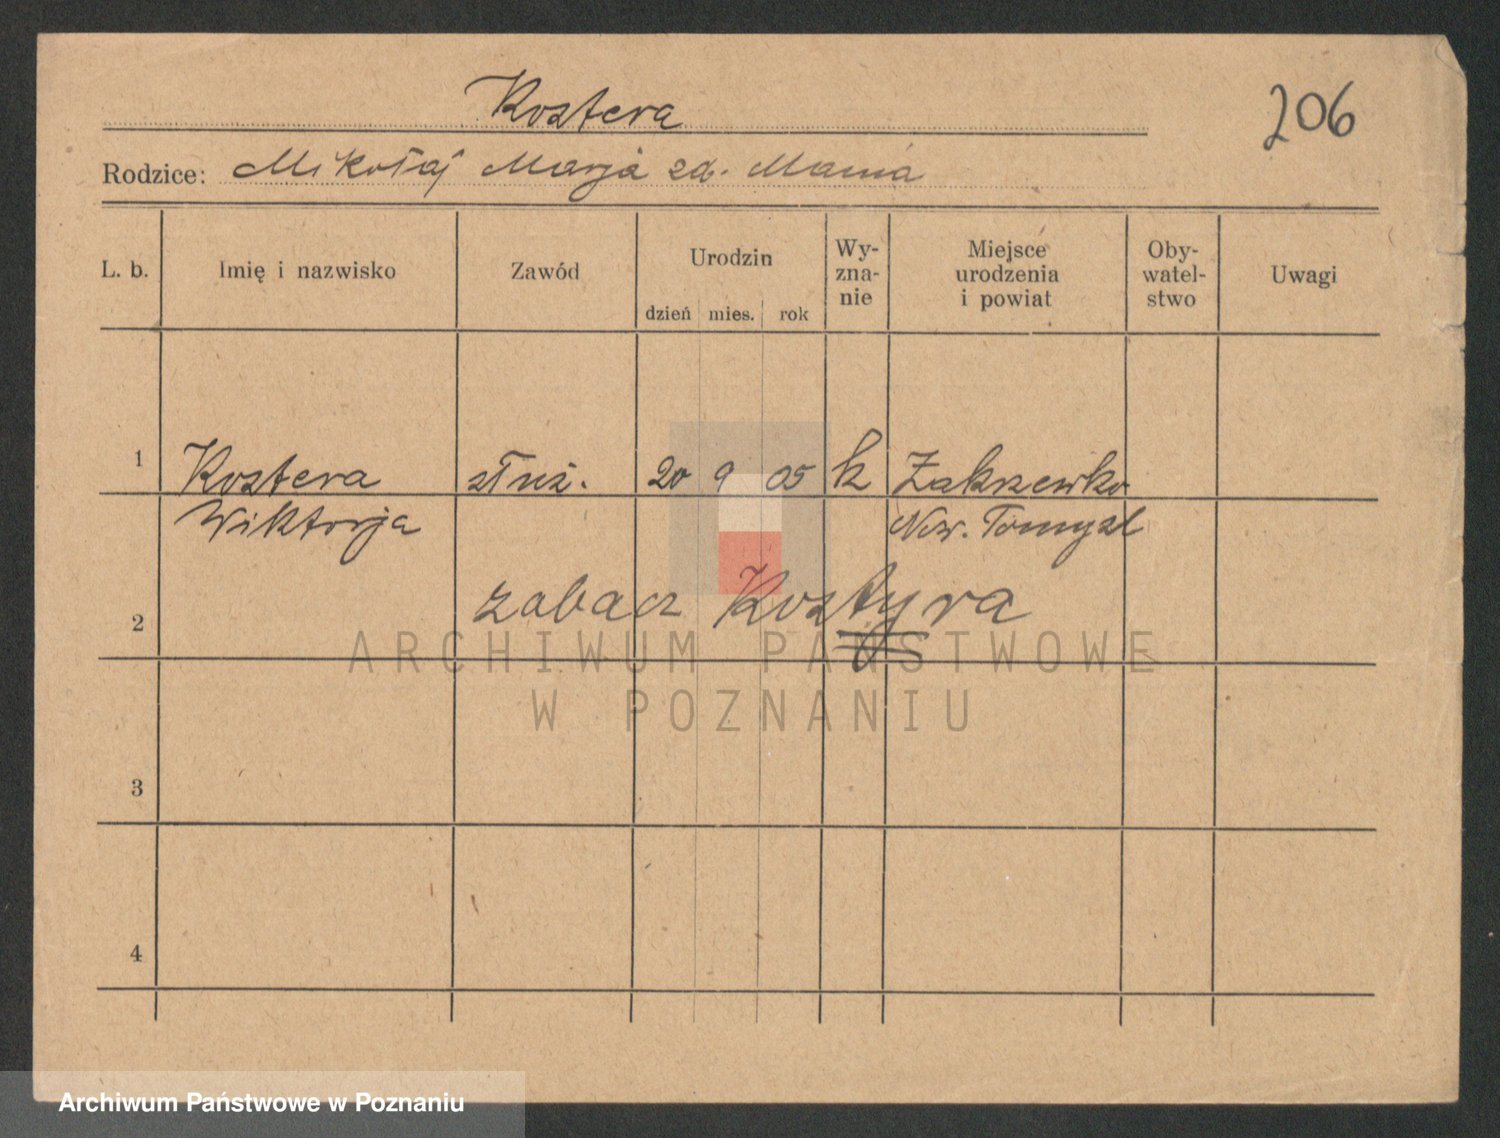 Kostera
206
Rodzice: Mikołaj Marja zd. Mania
L. b. Imię i nazwisko Zawód Urodzin dzień mies. rok Wy-znanie Miejsce urodzenia i powiat Oby-watel-stwo Uwagi
1 Kostera służ. 20 9 05 k Zakrzewko
Wiktorja Now. Tomyśl
2 zobacz Kostyra
ARCHIWUM PAŃSTWOWE
W POZNANIU
3
4
Archiwum Państwowe w Poznaniu